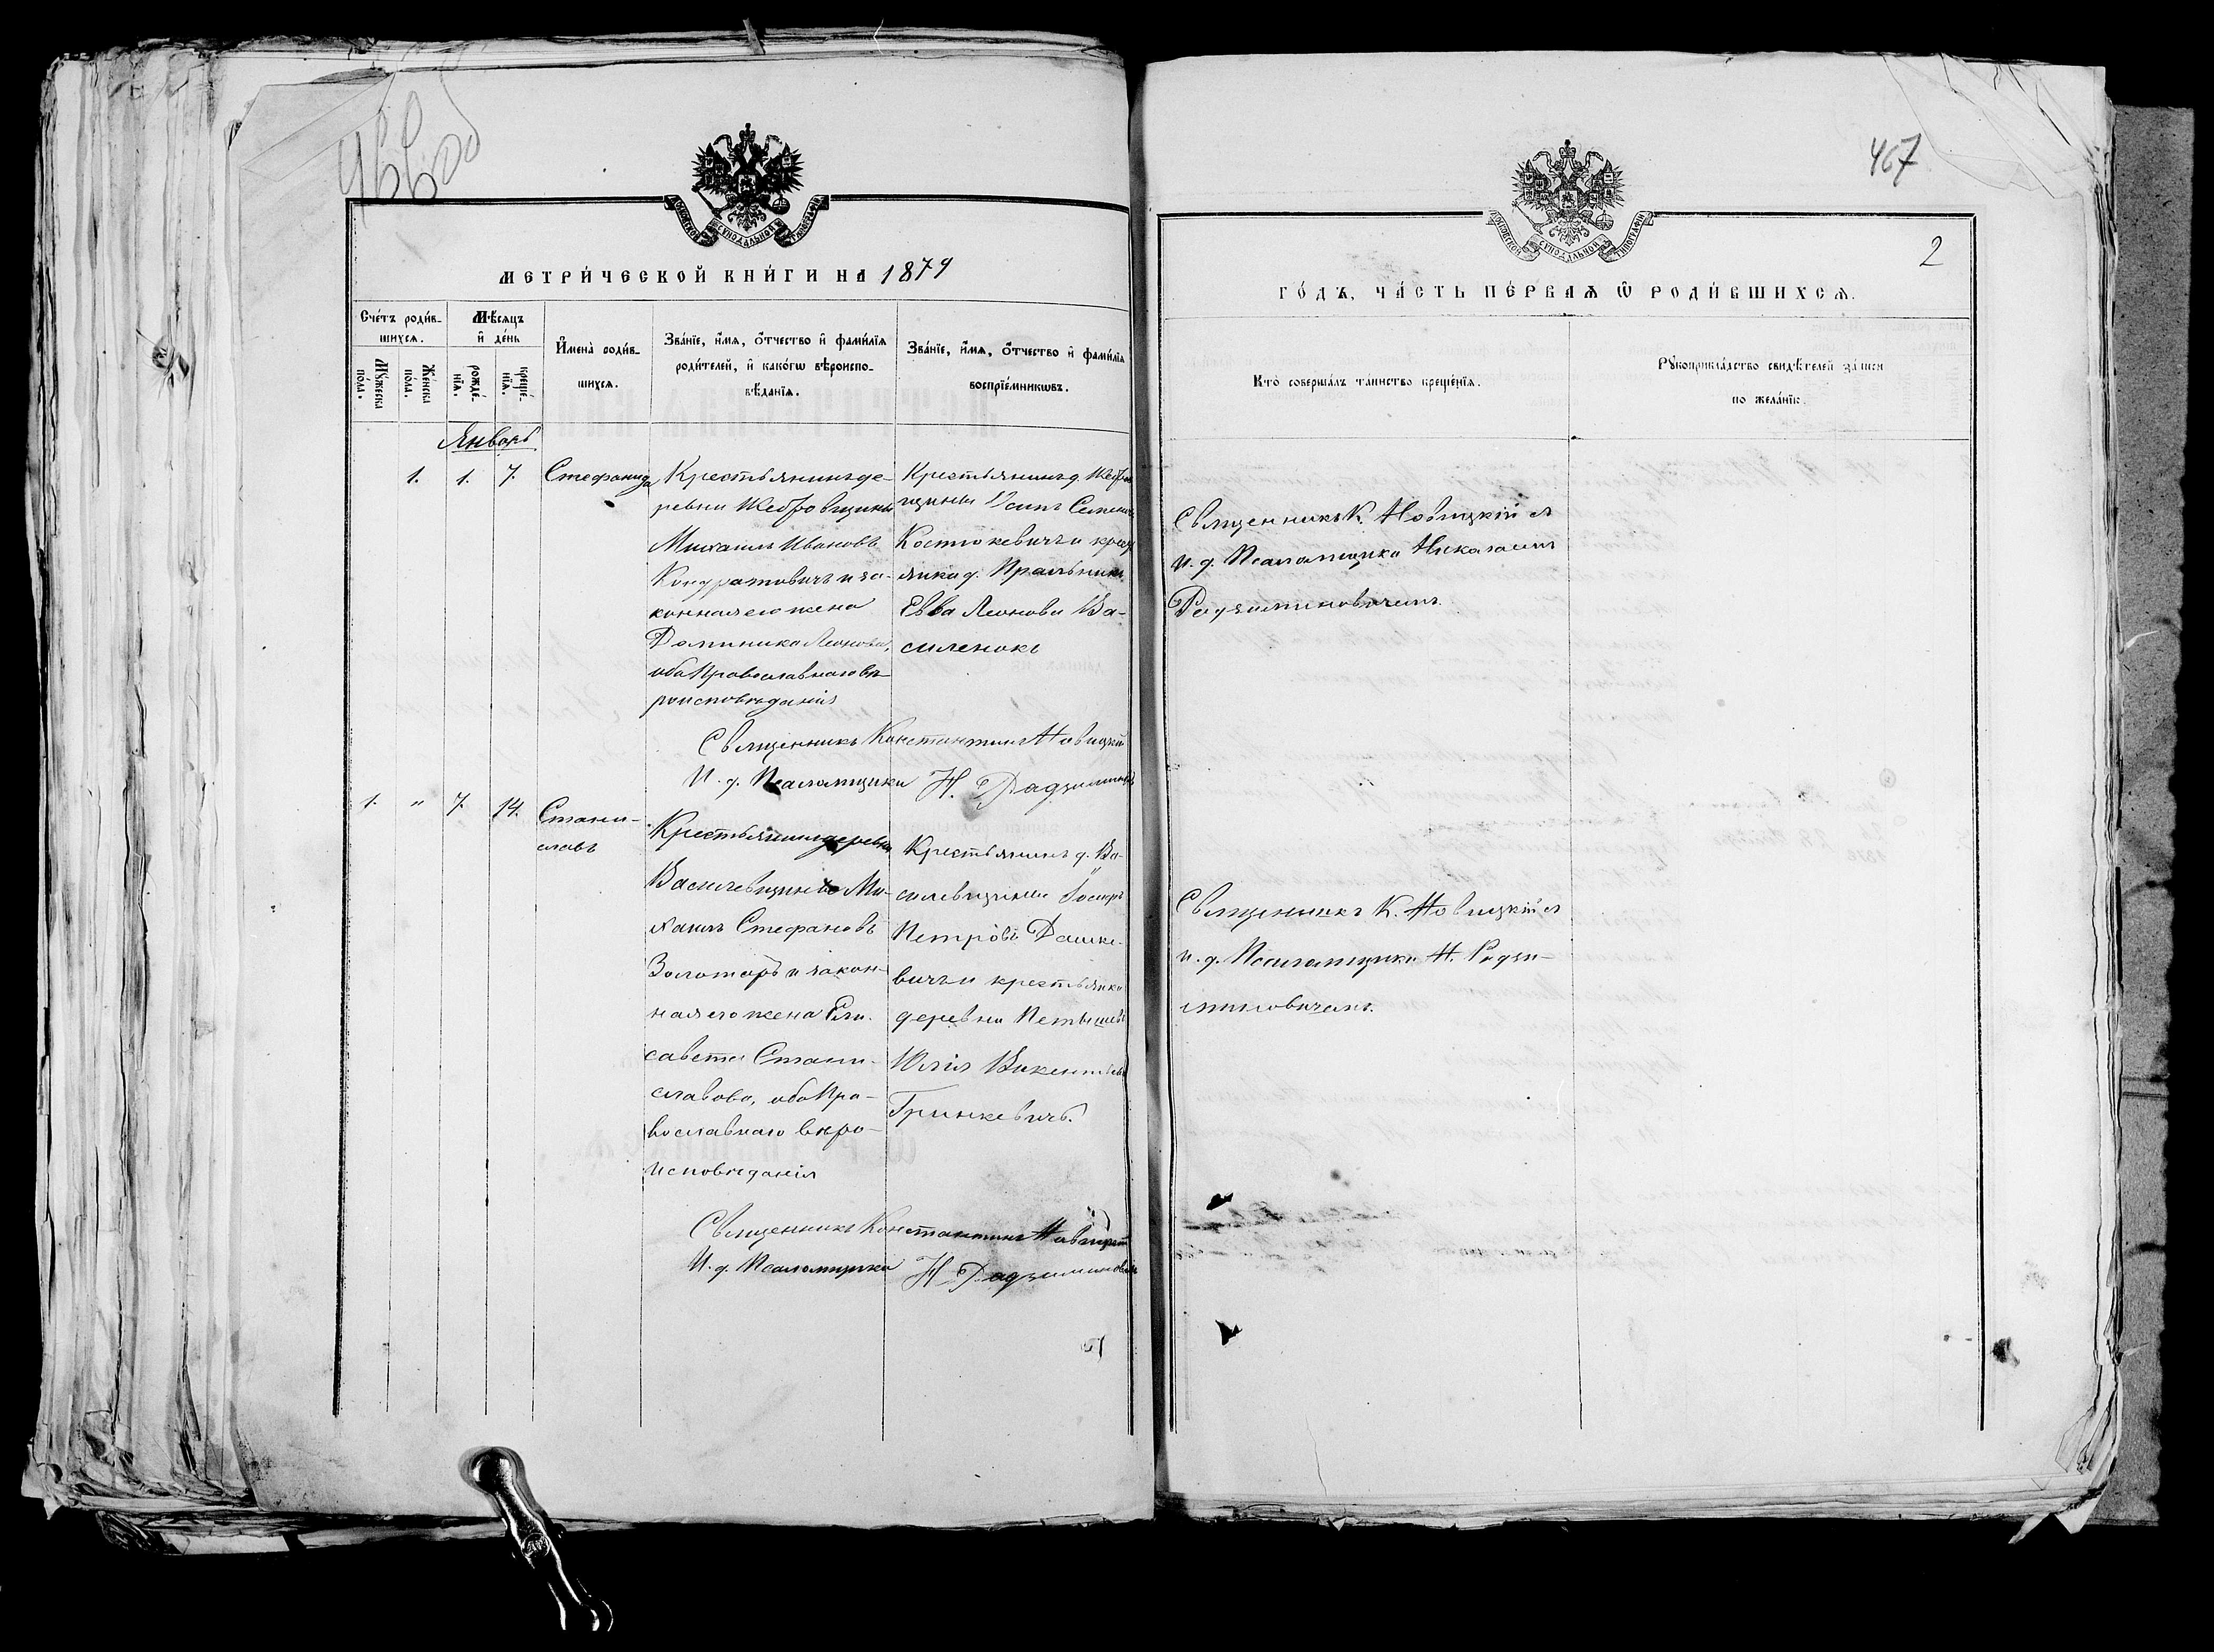 467
2
МОСКОВСКОЙ СѴНОДАЛЬНОЙ ТИПОГРАФІИ
МЕТРИ́ЧЕСКОЙ КНИ́ГИ НА 1879
Сче́тъ роди́в-
шихсѧ.
Мѣ́сяцъ
и҆ де́нь
Мꙋ́жеска
по́ла.
Же́нска
по́ла.
рожде́-
нїѧ.
креще́-
нїѧ.
И҆мена̀ роди́в-
шихсѧ.
Зва́нїе, и҆́мѧ, ѻ҆́тчество и҆ фами́лїѧ
роди́телей, и҆ како́гѡ вѣроиспо-
вѣ́данїѧ.
Зва́нїе, и҆́мѧ, ѻ҆́тчество и҆ фами́лїѧ
воспрїе́мникѡвъ.
Январь
1. 1. 7. Стефанида
Крестьянинъ де-
ревни Жебровщины
Михаилъ Ивановъ
Кондратовичъ и за-
конная его жена
Доминика Леонова,
оба Православнаго вѣ-
роисповѣданія
Крестьянинъ д.
щины Осипъ
Костюкевичъ и
янка д.
Евва Леонова Ва-
силенокъ
Священникъ Константинъ Новицкій
И. д. Псаломщика Н.
1. " 7. 14. Стани-
славъ
Крестьянинъ деревни
Василевщины Ми-
хаилъ Стефановъ
Золотаръ и закон-
ная его жена Ели-
савета Стани-
славова, оба Пра-
вославнаго вѣро-
исповѣданія
Крестьянинъ д. Ва-
силевщины Іосифъ
Петровъ Дашке-
вичъ и крестьянка
деревни
Юлія Викентьева
Гринкевичъ.
Священникъ Константинъ Новицкій
И. д. Псаломщика Н. Радзиминовичъ
МОСКОВСКОЙ СѴНОДАЛЬНОЙ ТИПОГРАФІИ
ГО́ДЪ, ЧА́СТЬ ПЕ́РВАѦ Ѡ҆ РОДИ́ВШИХСѦ.
Кто̀ соверша́лъ та́инство креще́нїѧ.
Рꙋкоприкла́дство свидѣ́телей за́писи
по жела́нїю.
Священникъ К. Новицкій съ
и. д. Псаломщика Николаемъ
Радзиминовичемъ.
Священникъ К. Новицкій съ
и. д. Псаломщика Н. Радзи-
миновичемъ.